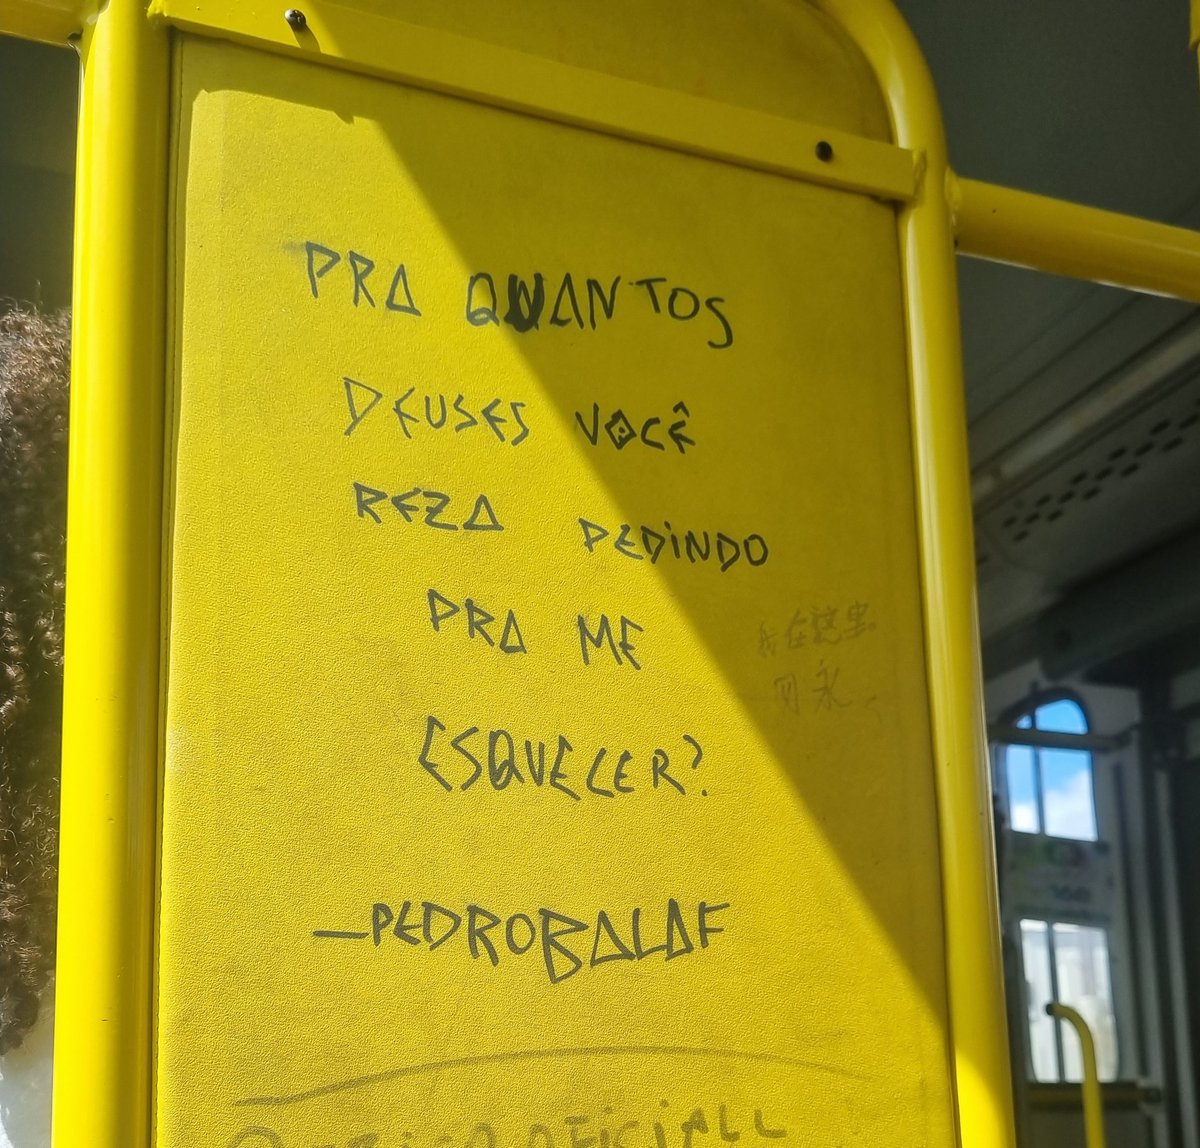 PRA QUANTOS
DEUSES VOCÊ
REZA PEDINDO
PRA ME
ESQUECER?
_PEDROBALAF
我在这里